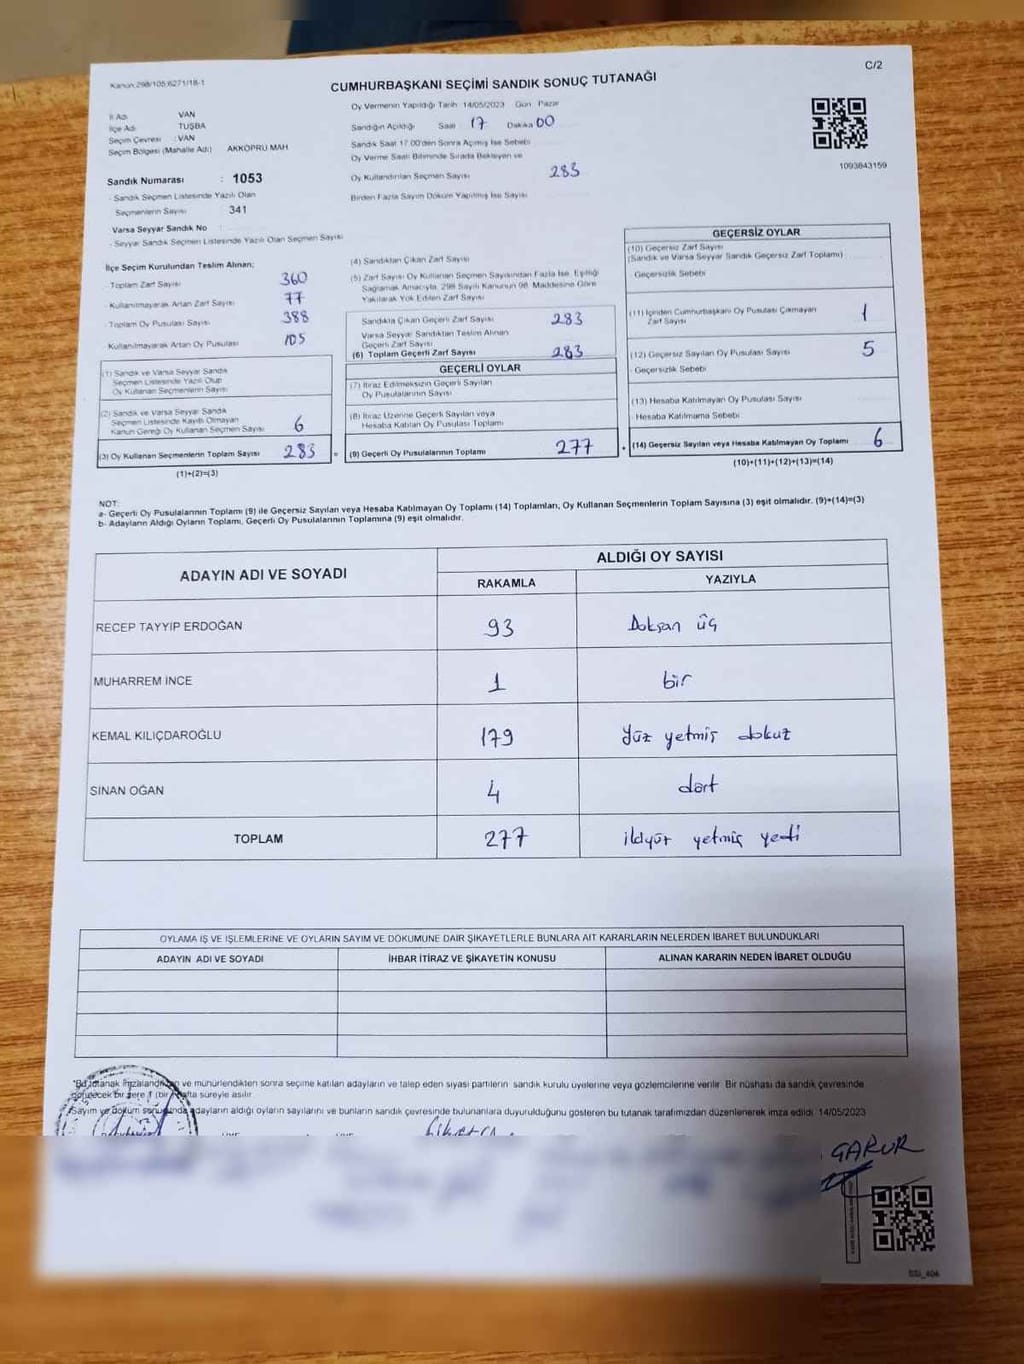 Kanun 298/105 6271/18-1
C/2
CUMHURBAŞKANI SEÇİMİ SANDIK SONUÇ TUTANAĞI
İl Adı VAN
İlçe Adı TUŞBA
Seçim Çevresi : VAN
Seçim Bölgesi (Mahalle Adı) AKKÖPRÜ MAH
Sandık Numarası : 1053
- Sandık Seçmen Listesinde Yazılı Olan
Seçmenlerin Sayısı 341
Varsa Seyyar Sandık No
- Seyyar Sandık Seçmen Listesinde Yazılı Olan Seçmen Sayısı
Oy Vermenin Yapıldığı Tarih 14/05/2023 Gün Pazar
Sandığın Açıldığı Saat 17 Dakika 00
Sandık Saat 17.00'den Sonra Açılmış İse Sebebi
Oy Verme Saati Bitiminde Sırada Bekleyen ve
Oy Kullandırılan Seçmen Sayısı 283
Birden Fazla Sayım Döküm Yapılmış İse Sayısı
1093643159
İlçe Seçim Kurulundan Teslim Alınan;
- Toplam Zarf Sayısı 360
- Kullanılmayarak Artan Zarf Sayısı 77
- Toplam Oy Pusulası Sayısı 388
- Kullanılmayarak Artan Oy Pusulası 105
(1) Sandık ve Varsa Seyyar Sandık
Seçmen Listesinde Yazılı Olup
Oy Kullanan Seçmenlerin Sayısı
(2) Sandık ve Varsa Seyyar Sandık
Seçmen Listesinde Kayıtlı Olmayan
Kanun Gereği Oy Kullanan Seçmen Sayısı 6
(3) Oy Kullanan Seçmenlerin Toplam Sayısı 283
(1)+(2)=(3)
(4) Sandıktan Çıkan Zarf Sayısı
(5) Zarf Sayısı Oy Kullanan Seçmen Sayısından Fazla İse, Eşitliği
Sağlamak Amacıyla, 298 Sayılı Kanunun 98. Maddesine Göre
Yakılarak Yok Edilen Zarf Sayısı
Sandıkta Çıkan Geçerli Zarf Sayısı 283
Varsa Seyyar Sandıktan Teslim Alınan
Geçerli Zarf Sayısı
(6) Toplam Geçerli Zarf Sayısı 283
GEÇERLİ OYLAR
(7) İtiraz Edilmeksizin Geçerli Sayılan
Oy Pusulalarının Sayısı
(8) İtiraz Üzerine Geçerli Sayılan veya
Hesaba Katılan Oy Pusulası Toplamı
= (9) Geçerli Oy Pusulalarının Toplamı 277 +
GEÇERSİZ OYLAR
(10) Geçersiz Zarf Sayısı
(Sandık ve Varsa Seyyar Sandık Geçersiz Zarf Toplamı)
- Geçersizlik Sebebi
(11) İçinden Cumhurbaşkanı Oy Pusulası Çıkmayan
Zarf Sayısı 1
(12) Geçersiz Sayılan Oy Pusulası Sayısı 5
- Geçersizlik Sebebi
(13) Hesaba Katılmayan Oy Pusulası Sayısı
- Hesaba Katılmama Sebebi
(14) Geçersiz Sayılan veya Hesaba Katılmayan Oy Toplamı 6
(10)+(11)+(12)+(13)=(14)
NOT:
a- Geçerli Oy Pusulalarının Toplamı (9) ile Geçersiz Sayılan veya Hesaba Katılmayan Oy Toplamı (14) Toplamları, Oy Kullanan Seçmenlerin Toplam Sayısına (3) eşit olmalıdır. (9)+(14)=(3)
b- Adayların Aldığı Oyların Toplamı, Geçerli Oy Pusulalarının Toplamına (9) eşit olmalıdır.
ADAYIN ADI VE SOYADI ALDIĞI OY SAYISI
RAKAMLA YAZIYLA
RECEP TAYYİP ERDOĞAN 93 Doksan üç
MUHARREM İNCE 1 bir
KEMAL KILIÇDAROĞLU 179 Yüz yetmiş dokuz
SİNAN OĞAN 4 dört
TOPLAM 277 ikiyüz yetmiş yedi
OYLAMA İŞ VE İŞLEMLERİNE VE OYLARIN SAYIM VE DÖKÜMÜNE DAİR ŞİKAYETLERLE BUNLARA AİT KARARLARIN NELERDEN İBARET BULUNDUKLARI
ADAYIN ADI VE SOYADI İHBAR İTİRAZ VE ŞİKAYETİN KONUSU ALINAN KARARIN NEDEN İBARET OLDUĞU
*Bu tutanak imzalandıktan ve mühürlendikten sonra seçime katılan adayların ve talep eden siyasi partilerin sandık kurulu üyelerine veya gözlemcilerine verilir. Bir nüshası da sandık çevresinde
görülecek bir yere 1 (bir) hafta süreyle asılır.
*Sayım ve döküm sonucunda adayların aldığı oyların sayılarını ve bunların sandık çevresinde bulunanlara duyurulduğunu gösteren bu tutanak tarafımızdan düzenlenerek imza edildi. 14/05/2023
GARUR